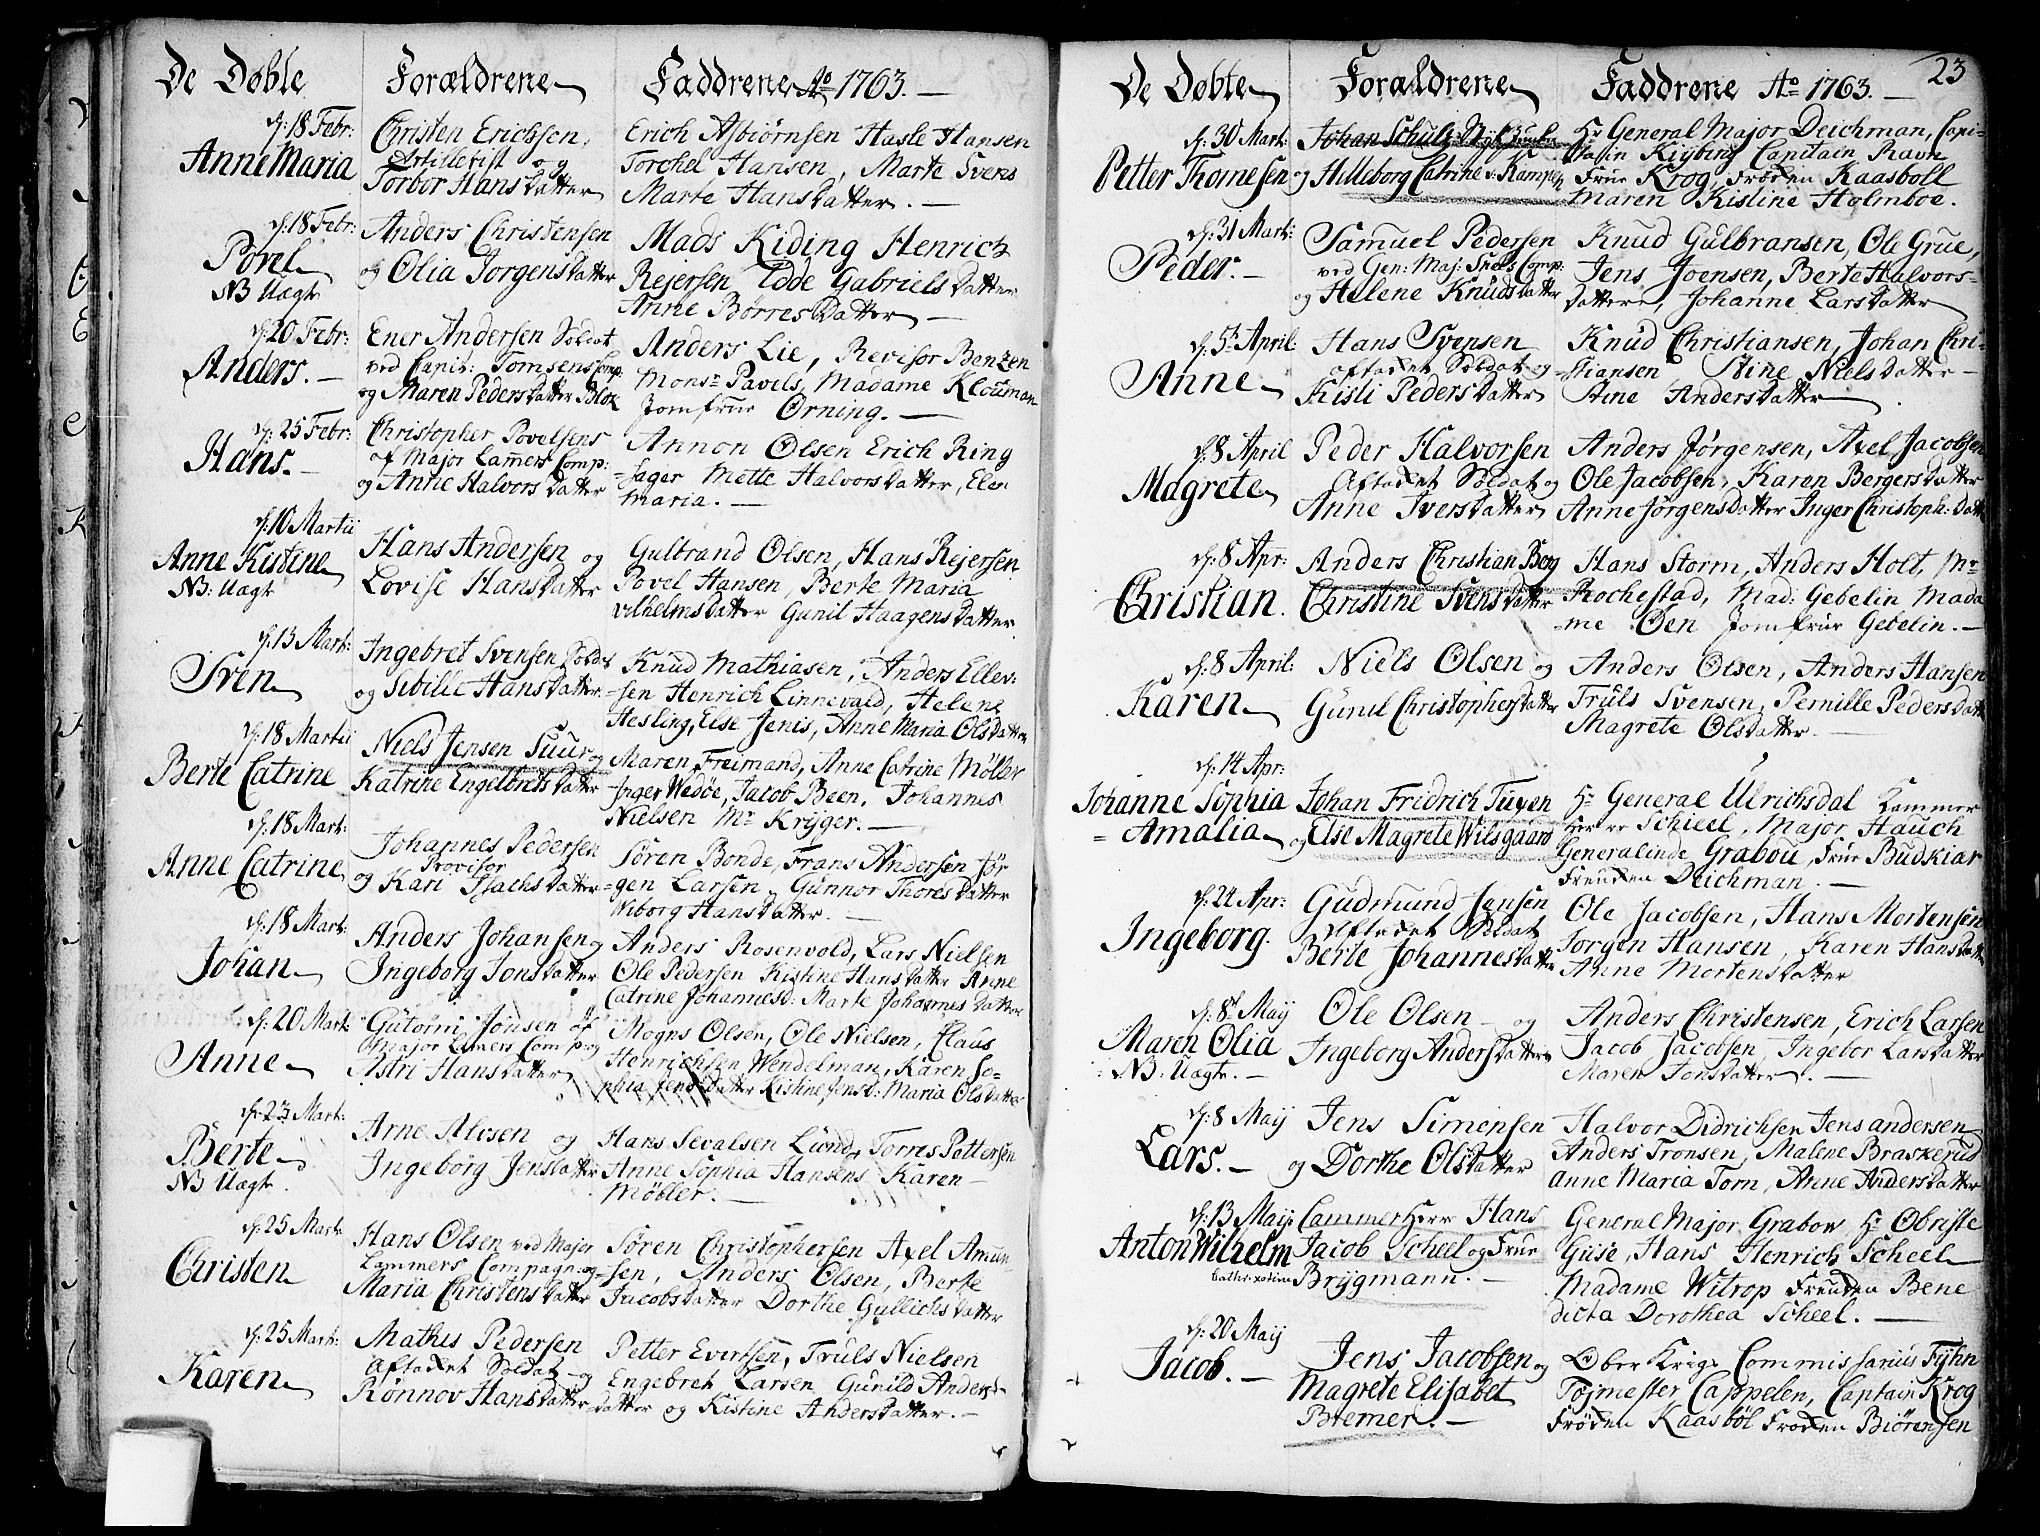 De Døbte Forældrene Faddrene Ao 1763. —
d: 18 Febr:
Anne Maria
Christen Erichsen,
Artillerist og
Torbor Hansdatter
Erich Asbiørnsen Hasle Hansen
Torchel Hansen, Marte Svens
Marte Hansdatter. —
d: 18 Febr:
Povel
NB Uagte
Anders Christensen
og Olia Jorgensdatter
Mads Kiding Henrich
Rejersen Edde Gabrielsdatter
Anne Børresdatter —
d: 20 Febr:
Anders. —
Ener Andersen Soldat
ved Capit: Tomsens Comp:
og Maren Pedersdatter Blok
Anders Lie, Revisor Benzen
Monsr Pavels, Madame Klousman
Jomfrue Orning. —
d: 25 Febr:
Hans. —
Christopher Povelsens
af Major Lamers Comp:
og Anne Halvorsdatter
Annon Olsen Erich Ring
-sager Mette Halvorsdatter, Elen
Maria. —
d: 16 Martii
Anne Kistine
NB: Uagte
Hans Andersen og
Lovise Hansdatter
Gulbrand Olsen, Hans Rejersen
Povel Hansen, Berte Maria
Vilhelmsdatter Gunil Haagensdatter
d: 13 Mart:
Sven
Ingebret Svensen Soldat
og Sibille Hansdatter
Knud Mathiasen, Anders Ellev-
-sen Henrich Linnevald, Helene
Hesling, Else Jenis, Anne Maria Olsdatter
d: 18 Martii
Berte Catrine
Niels Jensen Suur og
Katrine Engelbretsdatter
Maren Freimand, Anne Catrine Møller
Inger Wedøe, Jacob Been, Johannes
Nielsen Mr Kryger. —
d: 18 Mart:
Anne Catrine
Johannes Pedersen
Provisor
og Kari Isachsdatter
Søren Bonde, Frans Andersen Jør
-gen Larsen, Gunnor Thoresdatter
Wiborg Hansdatter. —
d: 18 Mart:
Johan
Anders Johansen og
Ingeborg Jonsdatter
Anders Rosenvold, Lars Nielsen
Ole Pedersen Kistine Hansdatter Anne
Catrine Johannesd: Marte Johannesdatter
d: 20 Mart:
Anne
Gutorm Jonsen af
Major Lamers Comp: og
Astri Hansdatter
Mogns Olsen, Ole Nielsen, Claus
Henrichsen Wendelman, Karen So-
phia Jensdatter Kistine Jensd: Maria Olsdatter
d: 23 Mart:
Berte
NB Uagte
Arne Alvsen og
Ingeborg Jensdatter
Hans Sevalsen Lund, Torres Pettersen
Anne Sophia Hansens Karen
Møbller. —
d: 25 Mart:
Christen
Hans Olsen ved Major
Lammers Compagn: og
Maria Christensdatter
Søren Christophersen Axel Amun
-sen, Anders Olsen, Berte
Jacobsdatter Dorthe Gullichsdatter
d: 25 Mart:
Karen
Mathis Pedersen
Aftadet Soldat og
Rønnov Hansdatter
Petter Evertsen, Truls Nielsen
Engebret Larsen Gunild Anders-
datter og Kistine Andersdatter. —
23
De Døbte Forældrene Faddrene Ao 1763. —
d: 30 Mart:
Petter Thomesen
Johan Schultz
og Hilleborg Catrine v: Kampen
Hr General Major Deichman, Capi-
tain Kiyberg Capitain Ravn
Frue Krog, Frøden Kaasboll
Maren Kistine Holmboe.
d: 31 Mart:
Peder. —
Samuel Pedersen
ved Gen: Maj: Comp:
og Helene Knudsdatter
Knud Gulbransen, Ole Grue,
Jens Joensen, Berte Halvors-
datter, Johanne Larsdatter
d: 5te April:
Anne
Hans Svensen
aftadet Soldat og
Kisti Pedersdatter
Knud Christiansen, Johan Chri-
-stiansen Stine Nielsdatter —
Stine Andersdatter
d: 8 April
Magrete
Peder Halvorsen
Aftadet Soldat og
Anne Iversdatter
Anders Jørgensen, Axel Jacobsen
Ole Jacobsen, Karen Bergersdatter
Anne Jørgensdatter Inger Christoph: datt
d: 8 Apr:
Christian.
Anders Christian Berg
Christine Svensdatter
Hans Storm, Anders Holt, Mr
Rochestad, Mad: Gebelin Mada
-me Øen Jomfrue Gebelin. —
d: 8 April:
Karen
Niels Olsen og
Gunil Christophersdatter
Anders Olsen, Anders Hansen
Truls Svensen, Pernille Pedersdatt
Magrete Olsdatter. —
d: 14 Apr:
Johanne Sophia
= Amalia
Johan Fridrich Tuxen
og Else Magrete Wilsgaard
Hr General Ulrichsdal Kammer
Herre Schieel, Major Hauch
Generalinde Grabou, Frue Budkiar
Freuden Deichman. —
d: 22 Apr:
Ingeborg.
Gudmund Jensen
Aftadet Soldat
Berte Johannesdatter
Ole Jacobsen, Hans Mortensen
Jorgen Hansen, Karen Hansdatter
Anne Mortensdatter
d: 8 May
Maren Olia
: NB: Uagte. —
Ole Olsen — og
Ingeborg Andersdatter
Anders Christensen, Erich Larsen
Jacob Jacobsen, Ingebor Larsdatter
Maren Jonsdatter. —
d: 8 May
Lars. —
Jens Simensen
og Dorthe Olsdatter
Halvor Didrichsen Jens andersen
Anders Tronsen, Malene Braskerud
Anne Maria Torn, Anne Andersdatter
d: 13 May:
Anton Wilhelm
Cammer Herr Hans
Jacob Scheel og Frue
Brygmann. —
General Major Grabow Hr Obriste
Guise, Hans Henrich Scheel
Madame Witrop Freuden Bene
dicta Dorothea Scheel. —
d: 20 May
Jacob. —
Jens Jacobsen og
Magrete Elisabet
Bremer. —
Ober Krigs Commissarius Fyhn
Tøjmester Cappelen, Captain Krog
Frøden Kaasbøl Frøden Biørensen